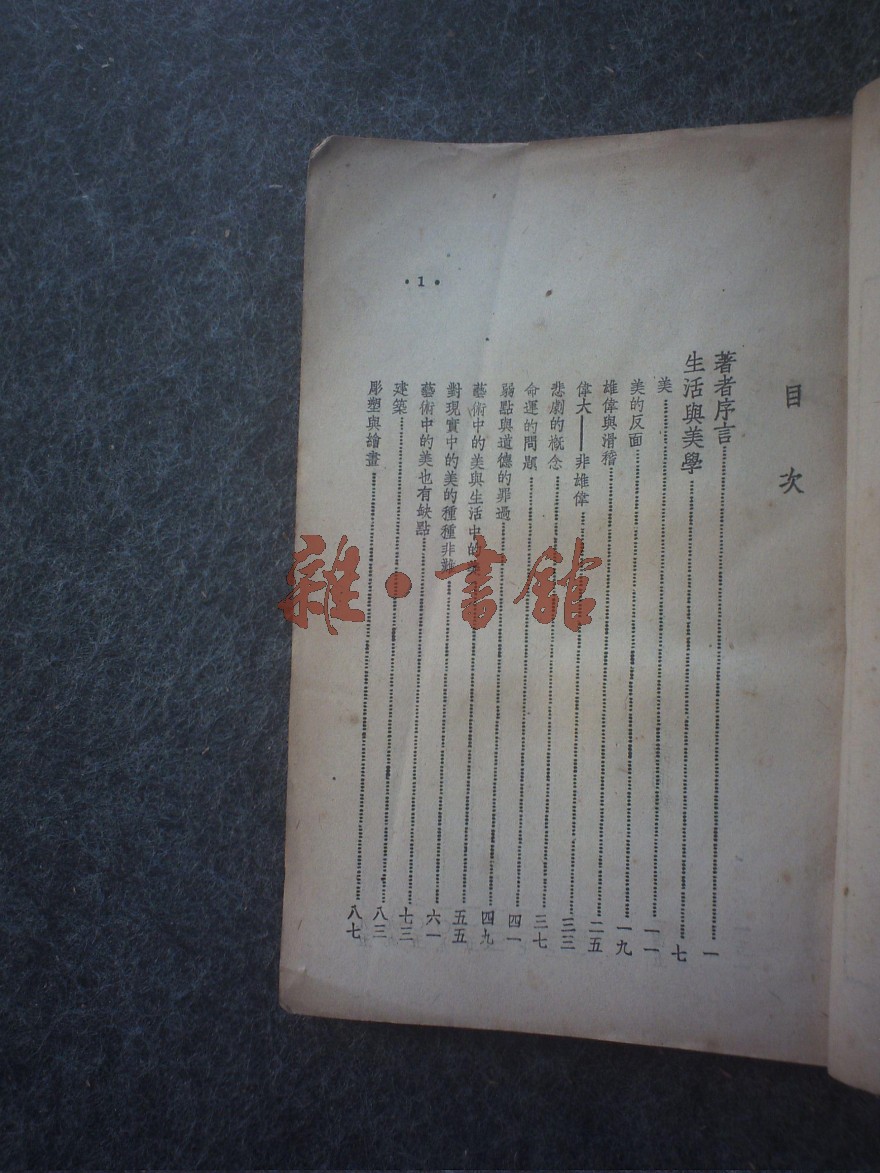 目次
著者序言……一
生活與美學……七
美……一一
美的反面……一九
雄偉與滑稽……二五
偉大——非雄偉……三三
悲劇的概念……三七
命運的問題……四一
弱點與道德的罪過……四九
藝術中的美與生活中的……五五
對現實中的美的種種非難……六一
藝術中的美也有缺點……七三
建築……八三
彫塑與繪畫……八七
·1·
雜·書館